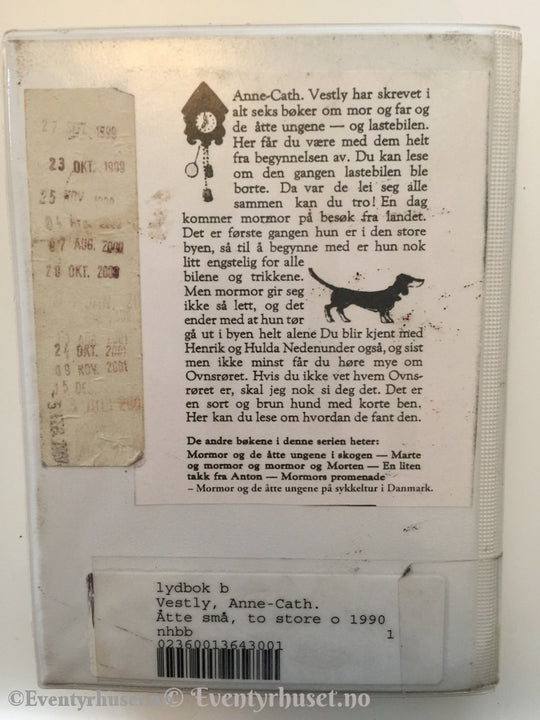 27 OKT. 1999
23 OKT. 1999
25 NOV.
07 AUG. 2000
28 OKT. 2000
JAN.
24 OKT. 2001
09 NOV. 2001
Anne-Cath. Vestly har skrevet i
alt seks bøker om mor og far og
de åtte ungene — og lastebilen.
Her får du være med dem helt
fra begynnelsen av. Du kan lese
om den gangen lastebilen ble
borte. Da var de lei seg alle
sammen kan du tro! En dag
kommer mormor på besøk fra landet.
Det er første gangen hun er i den store
byen, så til å begynne med er hun nok
litt engstelig for alle
bilene og trikkene.
Men mormor gir seg
ikke så lett, og det
ender med at hun tør
gå ut i byen helt alene Du blir kjent med
Henrik og Hulda Nedenunder også, og sist
men ikke minst får du høre mye om
Ovnsrøret. Hvis du ikke vet hvem Ovns-
røret er, skal jeg nok si deg det. Det er
en sort og brun hund med korte ben.
Her kan du lese om hvordan de fant den.
De andre bøkene i denne serien heter:
Mormor og de åtte ungene i skogen — Marte
og mormor og mormor og Morten — En liten
takk fra Anton — Mormors promenade
– Mormor og de åtte ungene på sykkeltur i Danmark.
lydbok b
Vestly, Anne-Cath.
Åtte små, to store o 1990
nhbb 1
02360013643001
©Eventyrhuset.no © Eventyrhuset.no